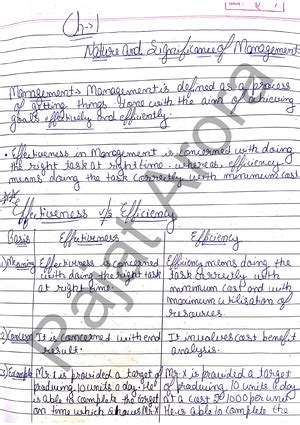 Ch-1
Nature And Significance of Management
Management → Management is defined as a process
of getting things done with the aim of achieving
goals effectively and efficiently.
• Effectiveness in Management is concerned with doing
the right task at right time. whereas, efficiency
means doing the task correctly with minimum cost
Effectiveness v/s Efficiency
Basis Effectiveness Efficiency
1) Meaning Effectiveness is concerned Efficiency means doing the
with doing the right task task correctly with
at right time. minimum cost and with
maximum utilisation of
resources.
2) Concern It is concerned with end It involves cost benefit
result. analysis.
3) Example Mr. X is provided a target of Mr. X is provided a target
producing 10 units a day. He of producing 10 units a day
is able to complete the target at a cost 1000 per unit
on time which is hours Mr X He is able to complete the
Rajat Arora